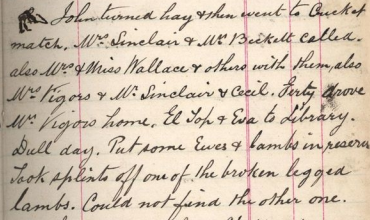 John turned hay & then went to Cricket
match. Mrs Sinclair & Mr Beckett called.
also Mrs & Miss Wallace & others with them, also
Mrs Vigors & Mr Sinclair & Cecil. Ferty drove
Mrs Vigors home. El Top & Eva to Library.
Dull day. Put some Ewes & lambs in reserve
Took splints off one of the broken legged
lambs. Could not find the other one.